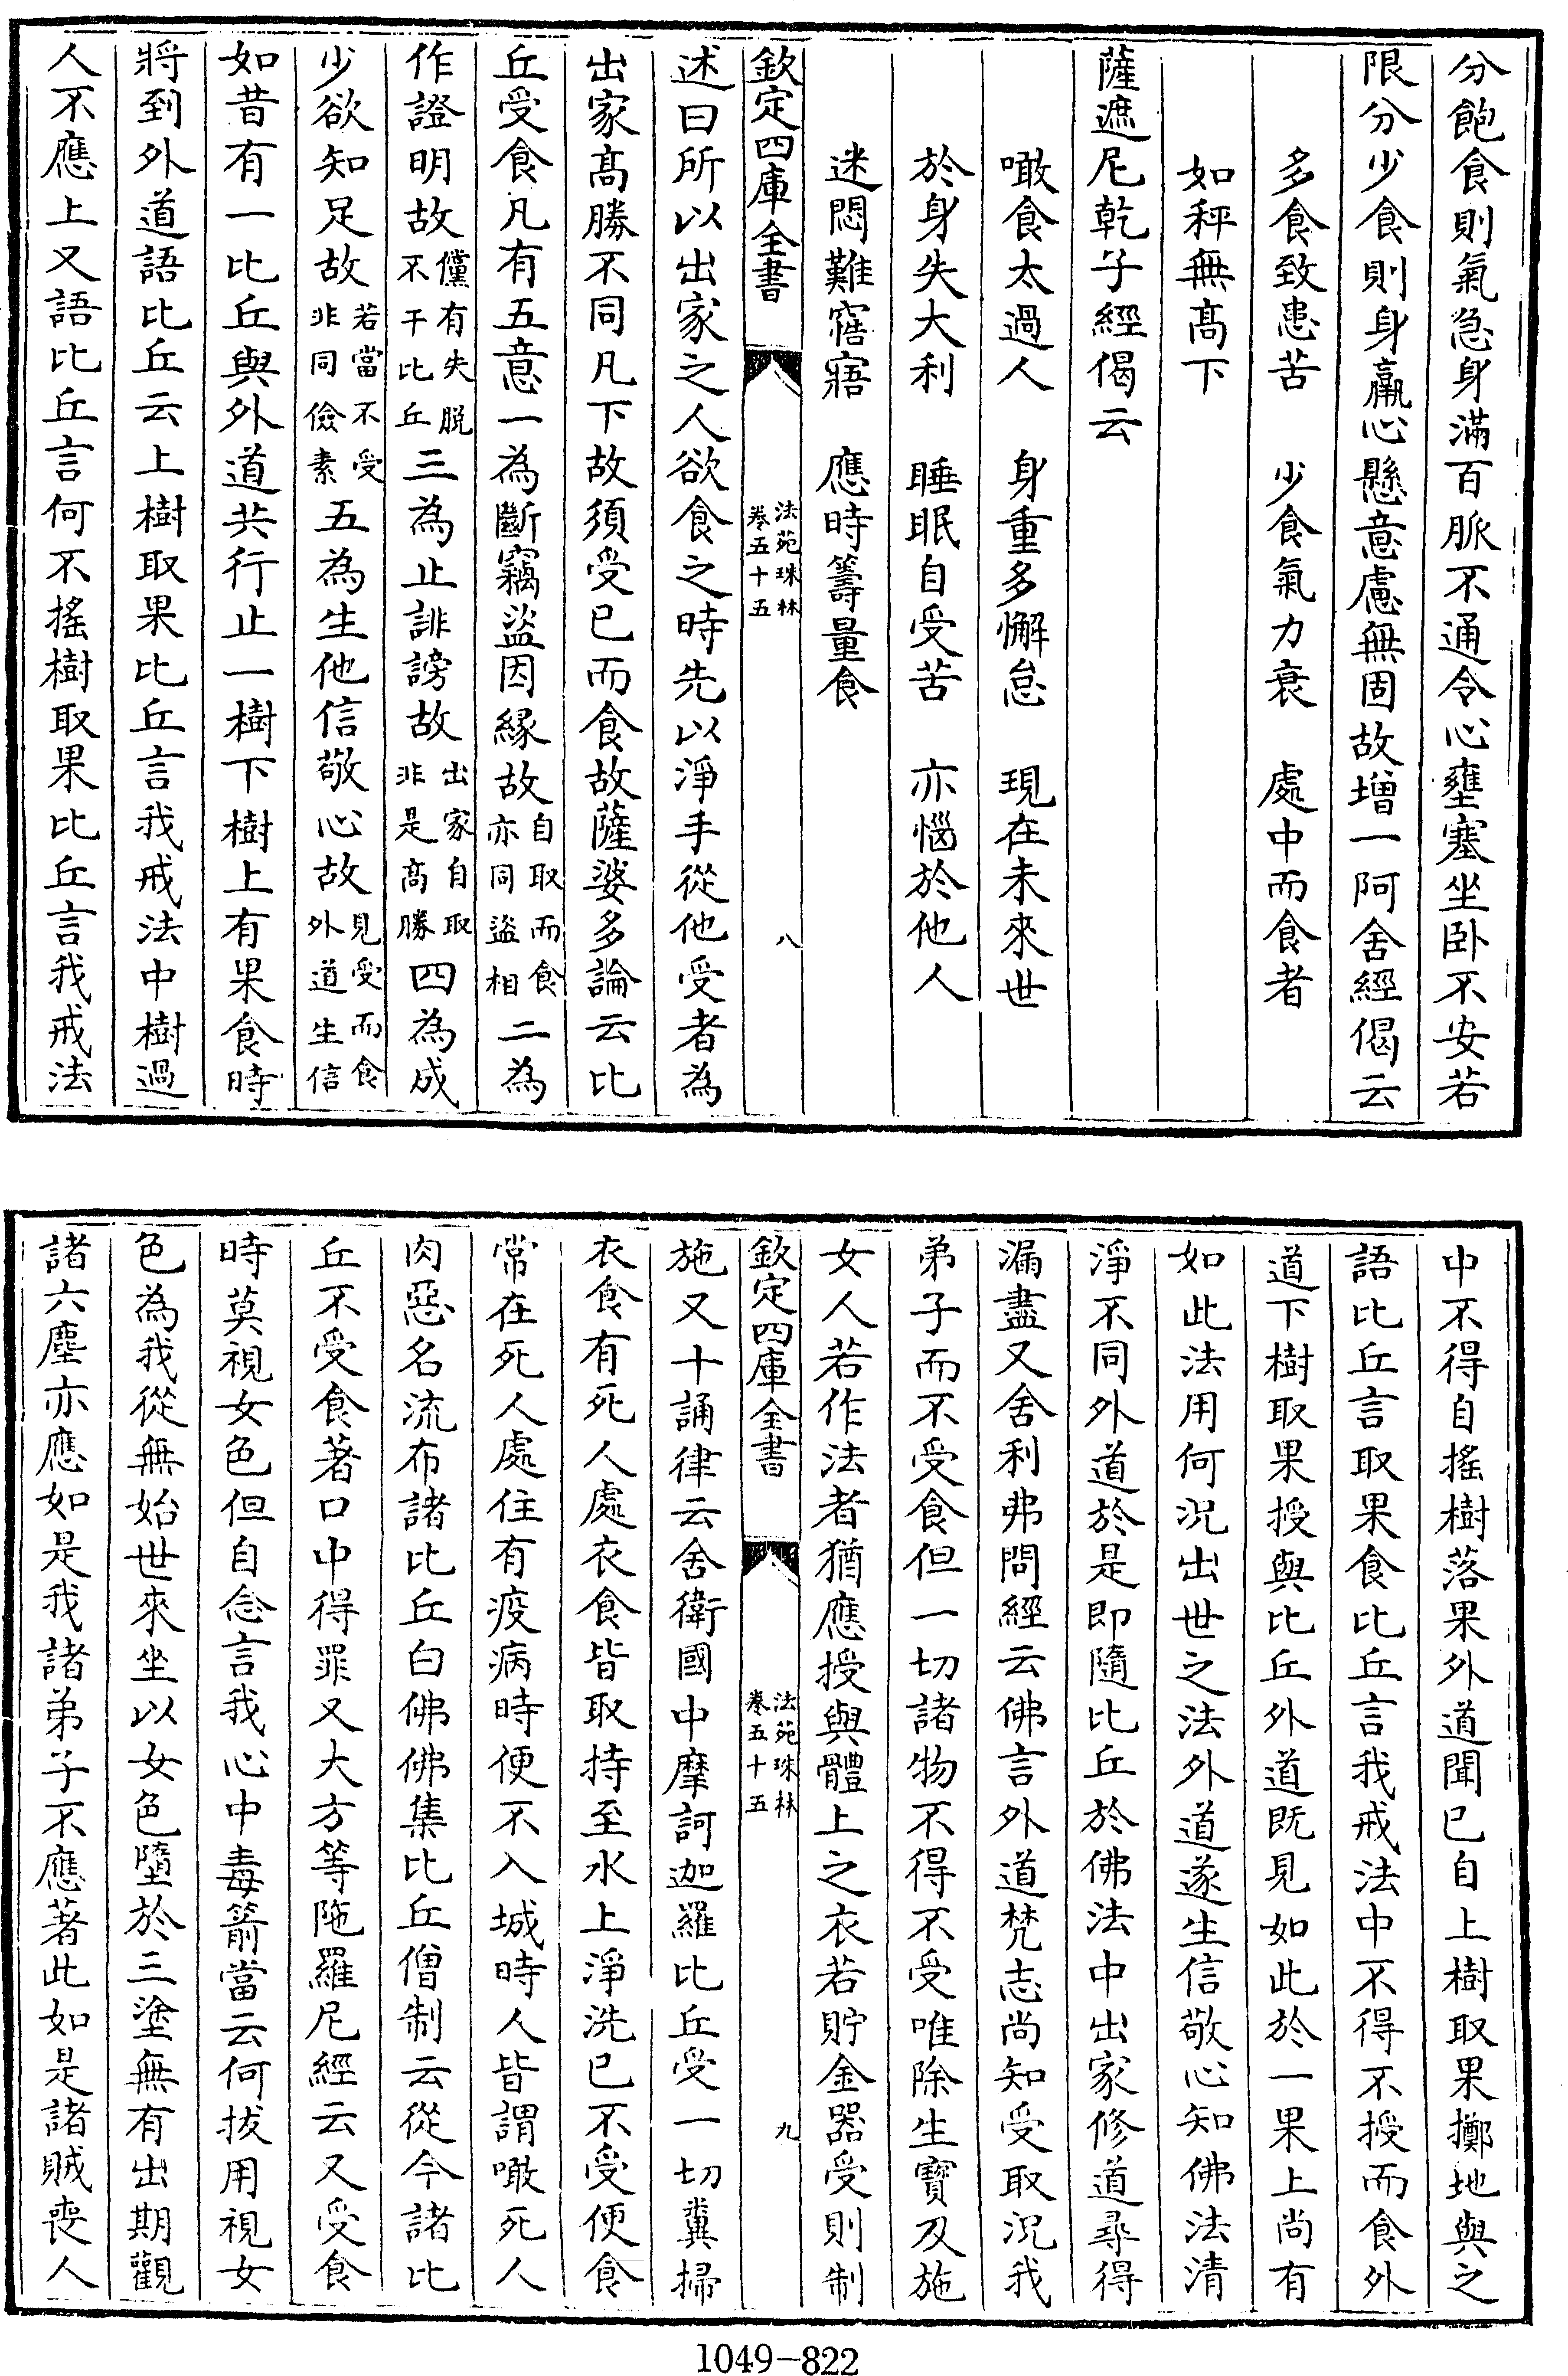 分飽食則氣急身滿百脈不通令心壅塞坐卧不安若
限分少食則身羸心懸意慮無固故增一阿舍經偈云
多食致患苦　少食氣力衰　處中而食者
如秤無髙下
薩遮尼乾子經偈云
噉食太過人　身重多懈怠　現在未來世
於身失大利　睡眠自受苦　亦惱於他人
迷悶難寤寤　應時籌量食
欽定四庫全書　法苑珠林卷五十五　八
述曰所以出家之人欲食之時先以淨手從他受者為
出家髙勝不同凡下故須受已而食故薩婆多論云比
丘受食凡有五意一為斷竊盜因緣故自取而食亦同盜相二為
作證明故儻有失脱不干比丘三為止誹謗故出家自取非是髙勝四為成
少欲知足故若當不受非同儉素五為生他信敬心故見受而食外道生信
如昔有一比丘與外道共行止一樹下樹上有果食時
將到外道語比丘云上樹取果比丘言我戒法中樹過
人不應上又語比丘言何不搖樹取果比丘言我戒法
中不得自搖樹落果外道聞已自上樹取果擲地與之
語比丘言取果食比丘言我戒法中不得不授而食外
道下樹取果授與比丘外道既見如此於一果上尚有
如此法用何況出世之法外道遂生信敬心知佛法清
淨不同外道於是即隨比丘於佛法中出家修道尋得
漏盡又舍利弗問經云佛言外道梵志尚知受取況我
弟子而不受食但一切諸物不得不受唯除生寶及施
女人若作法者猶應授與體上之衣若貯金器受則制
欽定四庫全書　法苑珠林卷五十五　九
施又十誦律云舍衛國中摩訶迦羅比丘受一切糞掃
衣食有死人處衣食皆取持至水上淨洗已不受便食
常在死人處住有疫病時便不入城時人皆謂噉死人
肉惡名流布諸比丘白佛佛集比丘僧制云從今諸比
丘不受食著口中得罪又大方等陁羅尼經云又受食
時莫視女色但自念言我心中毒箭當云何拔用視女
色為我從無始世來坐以女色墮於三塗無有出期觀
諸六塵亦應如是我諸弟子不應著此如是諸賊喪人
1049-822